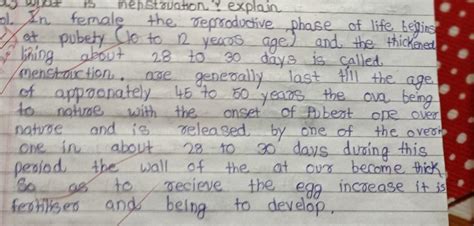 what is menstruation? explain
In female the reproductive phase of life begins
at pubety (10 to 12 years age) and the thickened
lining about 28 to 30 days is called
menstruction. are generally last till the age
of approonately 45 to 50 years the ova being
to nature with the onset of Pubert one over
nature and is released by one of the over
one in about 28 to 30 days during this
period the wall of the at our become thick
So as to recieve the egg increase it is
fertiliser and being to develop.